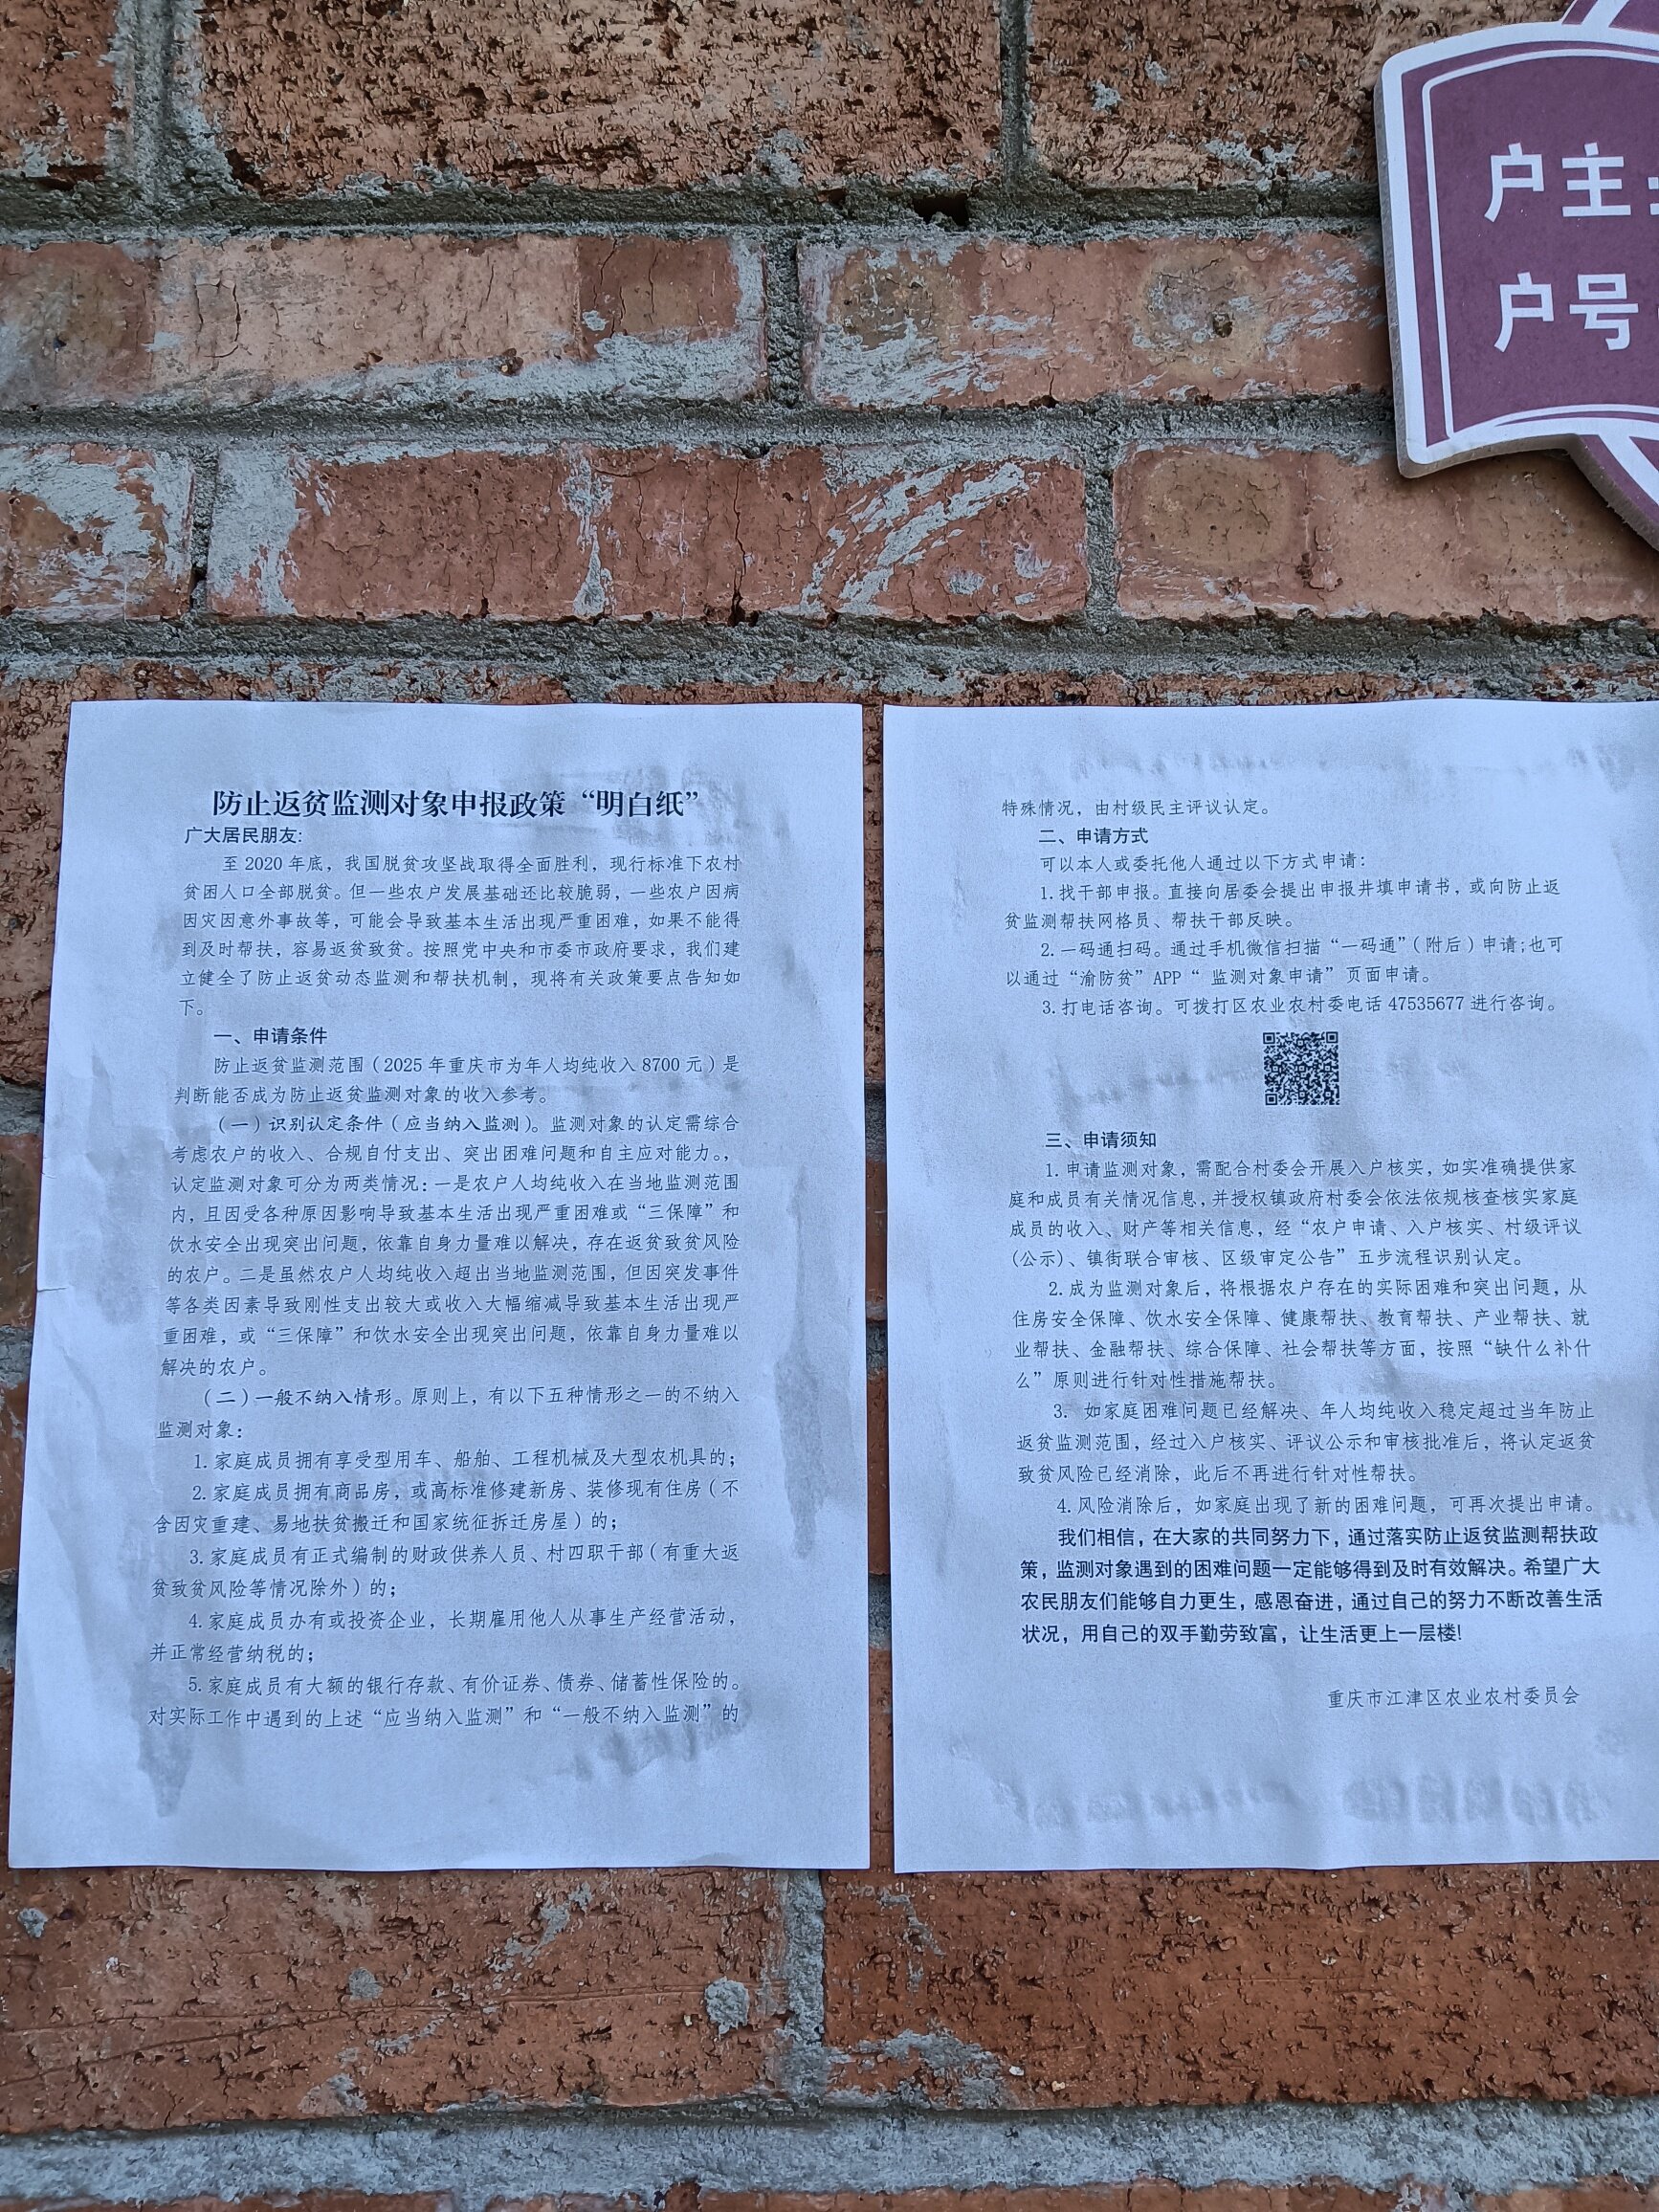 户主
户号
防止返贫监测对象申报政策“明白纸”
广大居民朋友:
至 2020 年底，我国脱贫攻坚战取得全面胜利，现行标准下农村
贫困人口全部脱贫。但一些农户发展基础还比较脆弱，一些农户因病
因灾因意外事故等，可能会导致基本生活出现严重困难，如果不能得
到及时帮扶，容易返贫致贫。按照党中央和市委市政府要求，我们建
立健全了防止返贫动态监测和帮扶机制，现将有关政策要点告知如
下。
一、申请条件
防止返贫监测范围（2025 年重庆市为年人均纯收入 8700 元）是
判断能否成为防止返贫监测对象的收入参考。
（一）识别认定条件（应当纳入监测）。监测对象的认定需综合
考虑农户的收入、合规自付支出、突出困难问题和自主应对能力。，
认定监测对象可分为两类情况：一是农户人均纯收入在当地监测范围
内，且因受各种原因影响导致基本生活出现严重困难或“三保障”和
饮水安全出现突出问题，依靠自身力量难以解决，存在返贫致贫风险
的农户。二是虽然农户人均纯收入超出当地监测范围，但因突发事件
等各类因素导致刚性支出较大或收入大幅缩减导致基本生活出现严
重困难，或“三保障”和饮水安全出现突出问题，依靠自身力量难以
解决的农户。
（二）一般不纳入情形。原则上，有以下五种情形之一的不纳入
监测对象：
1.家庭成员拥有享受型用车、船舶、工程机械及大型农机具的；
2.家庭成员拥有商品房，或高标准修建新房、装修现有住房（不
含因灾重建、易地扶贫搬迁和国家统征拆迁房屋）的；
3.家庭成员有正式编制的财政供养人员、村四职干部（有重大返
贫致贫风险等情况除外）的；
4.家庭成员办有或投资企业，长期雇用他人从事生产经营活动，
并正常经营纳税的；
5.家庭成员有大额的银行存款、有价证券、债券、储蓄性保险的。
对实际工作中遇到的上述“应当纳入监测”和“一般不纳入监测”的
特殊情况，由村级民主评议认定。
二、申请方式
可以本人或委托他人通过以下方式申请：
1.找干部申报。直接向居委会提出申报并填申请书，或向防止返
贫监测帮扶网格员、帮扶干部反映。
2.一码通扫码。通过手机微信扫描“一码通”（附后）申请;也可
以通过“渝防贫”APP“ 监测对象申请”页面申请。
3.打电话咨询。可拨打区农业农村委电话 47535677 进行咨询。
三、申请须知
1.申请监测对象，需配合村委会开展入户核实，如实准确提供家
庭和成员有关情况信息，并授权镇政府村委会依法依规核查核实家庭
成员的收入、财产等相关信息，经“农户申请、入户核实、村级评议
(公示)、镇街联合审核、区级审定公告”五步流程识别认定。
2.成为监测对象后，将根据农户存在的实际困难和突出问题，从
住房安全保障、饮水安全保障、健康帮扶、教育帮扶、产业帮扶、就
业帮扶、金融帮扶、综合保障、社会帮扶等方面，按照“缺什么补什
么”原则进行针对性措施帮扶。
3. 如家庭困难问题已经解决、年人均纯收入稳定超过当年防止
返贫监测范围，经过入户核实、评议公示和审核批准后，将认定返贫
致贫风险已经消除，此后不再进行针对性帮扶。
4.风险消除后，如家庭出现了新的困难问题，可再次提出申请。
我们相信，在大家的共同努力下，通过落实防止返贫监测帮扶政
策，监测对象遇到的困难问题一定能够得到及时有效解决。希望广大
农民朋友们能够自力更生，感恩奋进，通过自己的努力不断改善生活
状况，用自己的双手勤劳致富，让生活更上一层楼!
重庆市江津区农业农村委员会